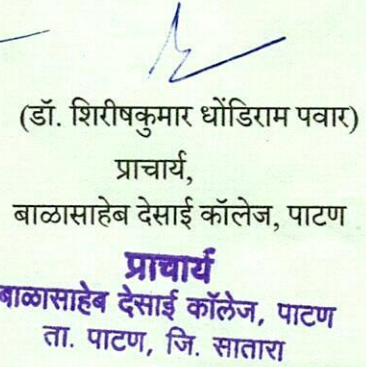 (डॉ. शिरीषकुमार धोंडिराम पवार)
प्राचार्य,
बाळासाहेब देसाई कॉलेज, पाटण
प्राचार्य
बाळासाहेब देसाई कॉलेज, पाटण
ता. पाटण, जि. सातारा